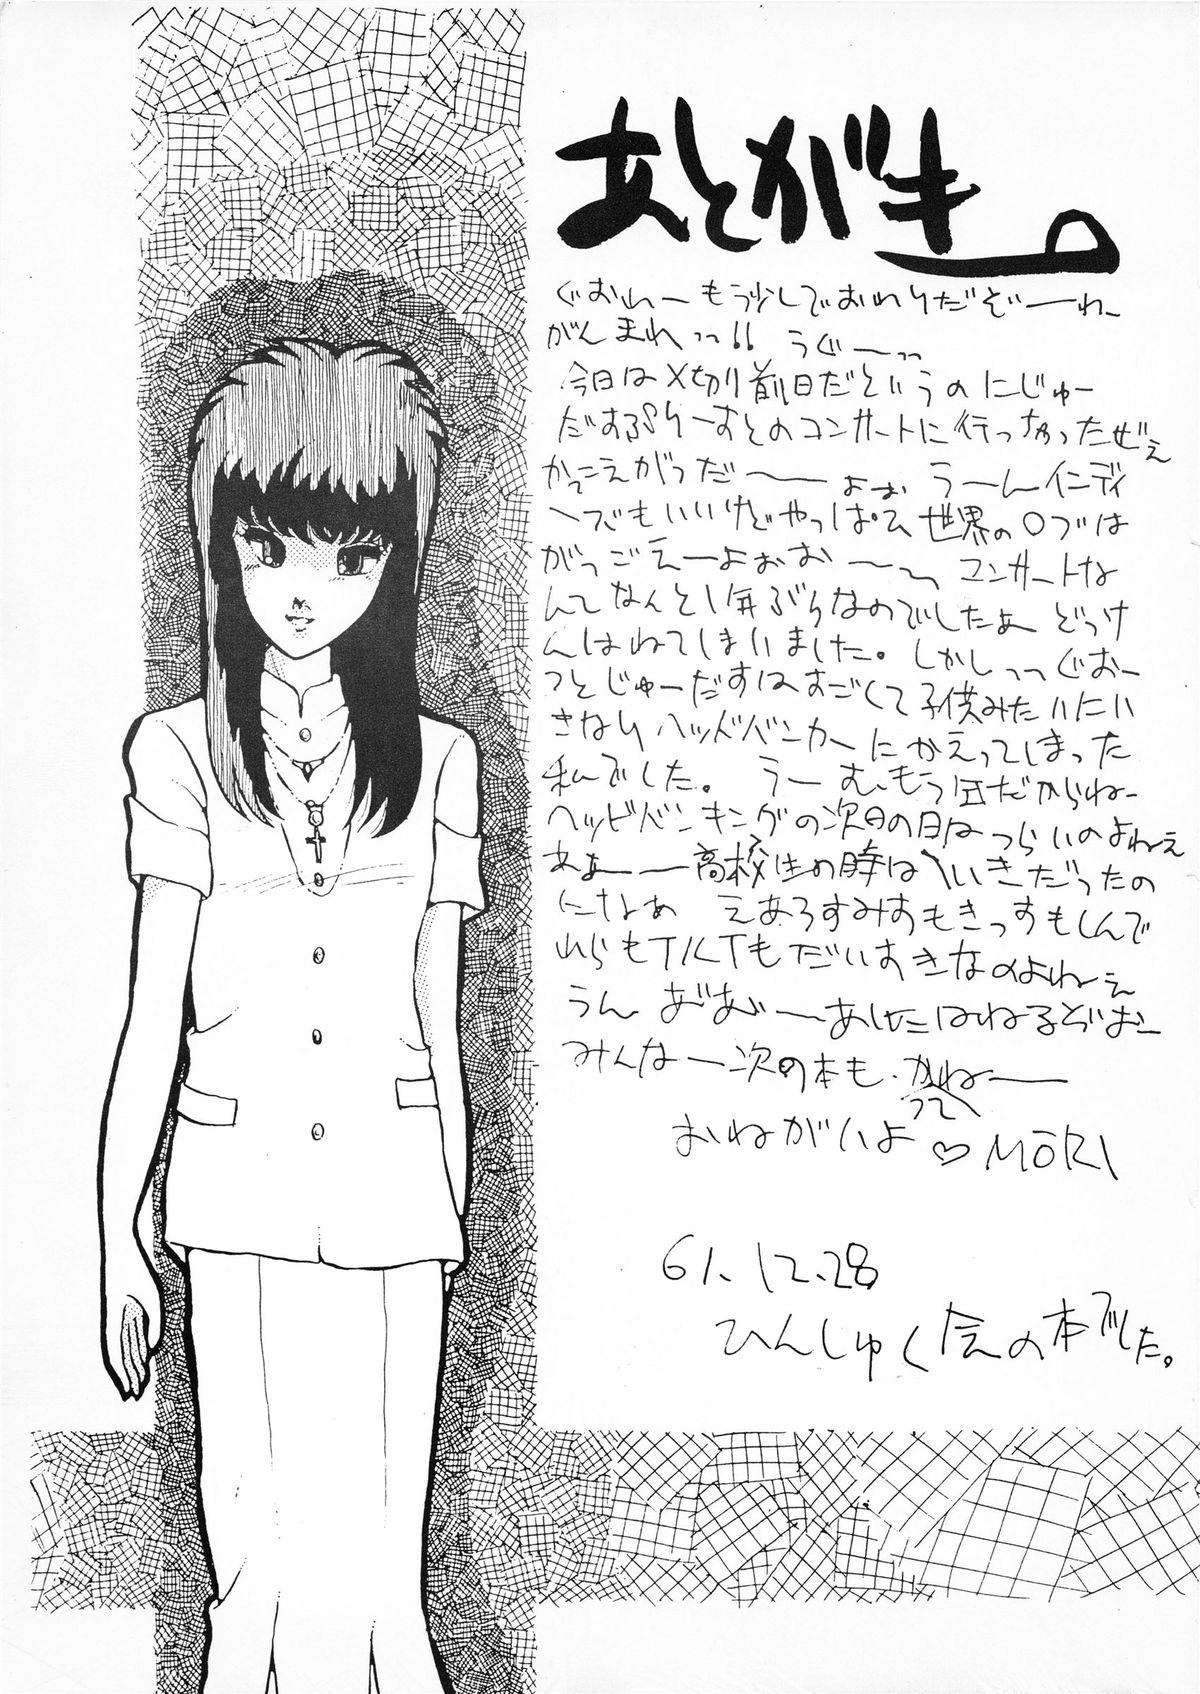 あとがき。
ぐおわーもう少しでおわりだぞーーわー
がんまれっっ!! うぐーーっっ
今日は〆切り前日だというのにじゅー
だすぷりーすとのコンサートに行っちゃったぜえ
かっこえがっだ〜〜よぉぉ うーんインディ
ーズでもいいけどやっぱっ世界のロブは
がっごえーーよぉぉお〜〜っ コンサートな
んてなんと1年ぶりなのでしたぁ どっけ
んはねてしまいました。しかしっっぐおー
っとじゅーだすはすごくて子供みたいにい
きなりヘッドバンカーにかえってしまった
私でした。 うーむ、もう年だからねー
ヘッドバンキングの次の日はつらいのよねえ
あぁーー高校生の時はへいきだったの
になぁ えあろすみすもきっすもしんで
いらもTルTもだいすきなのよねぇ
うん おおーーあしたはねるぞおー
みんなー次の本も、かっねーー
って
おねがいよ♡MORI
61.12.28
ひんしゅく会の本でした。